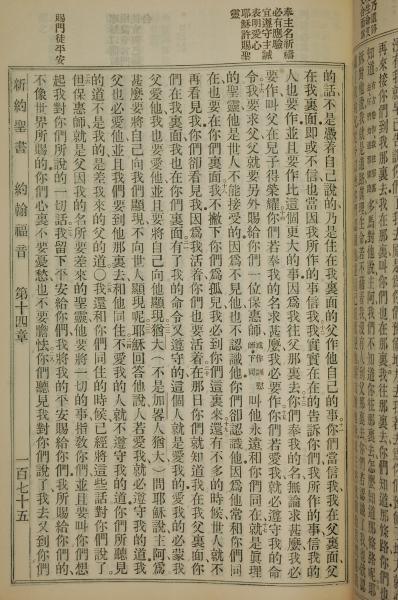 再來接你們到我那裏去我在那裏叫你們也在那裏我往那裏去你們知道那條路你們也
的話不是憑着自己說的乃是住在我裏面的父作他自己的事你們當信我我在父裏面父
在我裏面即或不信也當因我所作的事信我我實實在在的告訴你們我所作的事信我的
人也要作並且要作比這個更大的事因爲我往父那裏去你們奉我的名無論求甚麼我必
要作叫父在兒子得榮耀你們若奉我的名求甚麼我必要作你們若愛我就必遵守我的命
令我要求父父就要另外賜給你們一位保惠師或作訓慰師下同叫他永遠和你們同在就是眞理
的聖靈他是世人不能接受的因爲不見他也不認識他你們卻認識他因爲他常和你們同
在也要在你們裏面我不撇下你們爲孤兒我必到你們這裏來還有不多的時候世人就不
再看見我你們卻看見我因爲我活着你們也要活着在那日你們就知道我在我父裏面你
們在我裏面我也在你們裏面有了我的命令又遵守的這個人就是愛我的愛我的必蒙我
父愛他我也要愛他並且要將自己向他顯現猶大（不是加畧人猶大）問耶穌說主阿爲
甚麼要將自己向我們顯現不向世人顯現呢耶穌回答他說人若愛我就必遵守我的道我
父也必愛他並且我們要到他那裏去和他同住不愛我的人就不遵守我的道你們所聽見
的道不是我的是差我來的父的道○我還和你們同住的時候已經將這些話對你們說了
但保惠師就是父因我的名所要差來的聖靈他要將一切的事指敎你們並且要叫你們想
起我對你們所說的一切話我留下平安給你們我將我的平安賜給你們我所賜給你們的
不像世界所賜的你們心裏不要憂愁也不要膽怯你們聽見我對你們說了我去又到你們
奉主名祈禱
必有應驗
宜遵守主誡
表明愛心
耶穌許賜聖
靈
賜門徒平安
新約聖書　約翰福音　第十四章　一百七十五